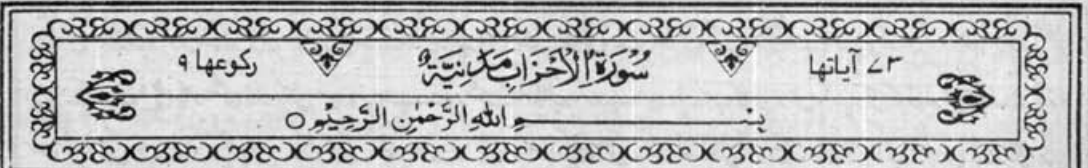 ۷۳ آیاتها سُوْرَةُ الْاَحْزَابِ مَدَنِيَّةٌ رکوعها ۹
بِسْــــــــمِ اللّٰهِ الرَّحْمٰنِ الرَّحِيْمِ ○